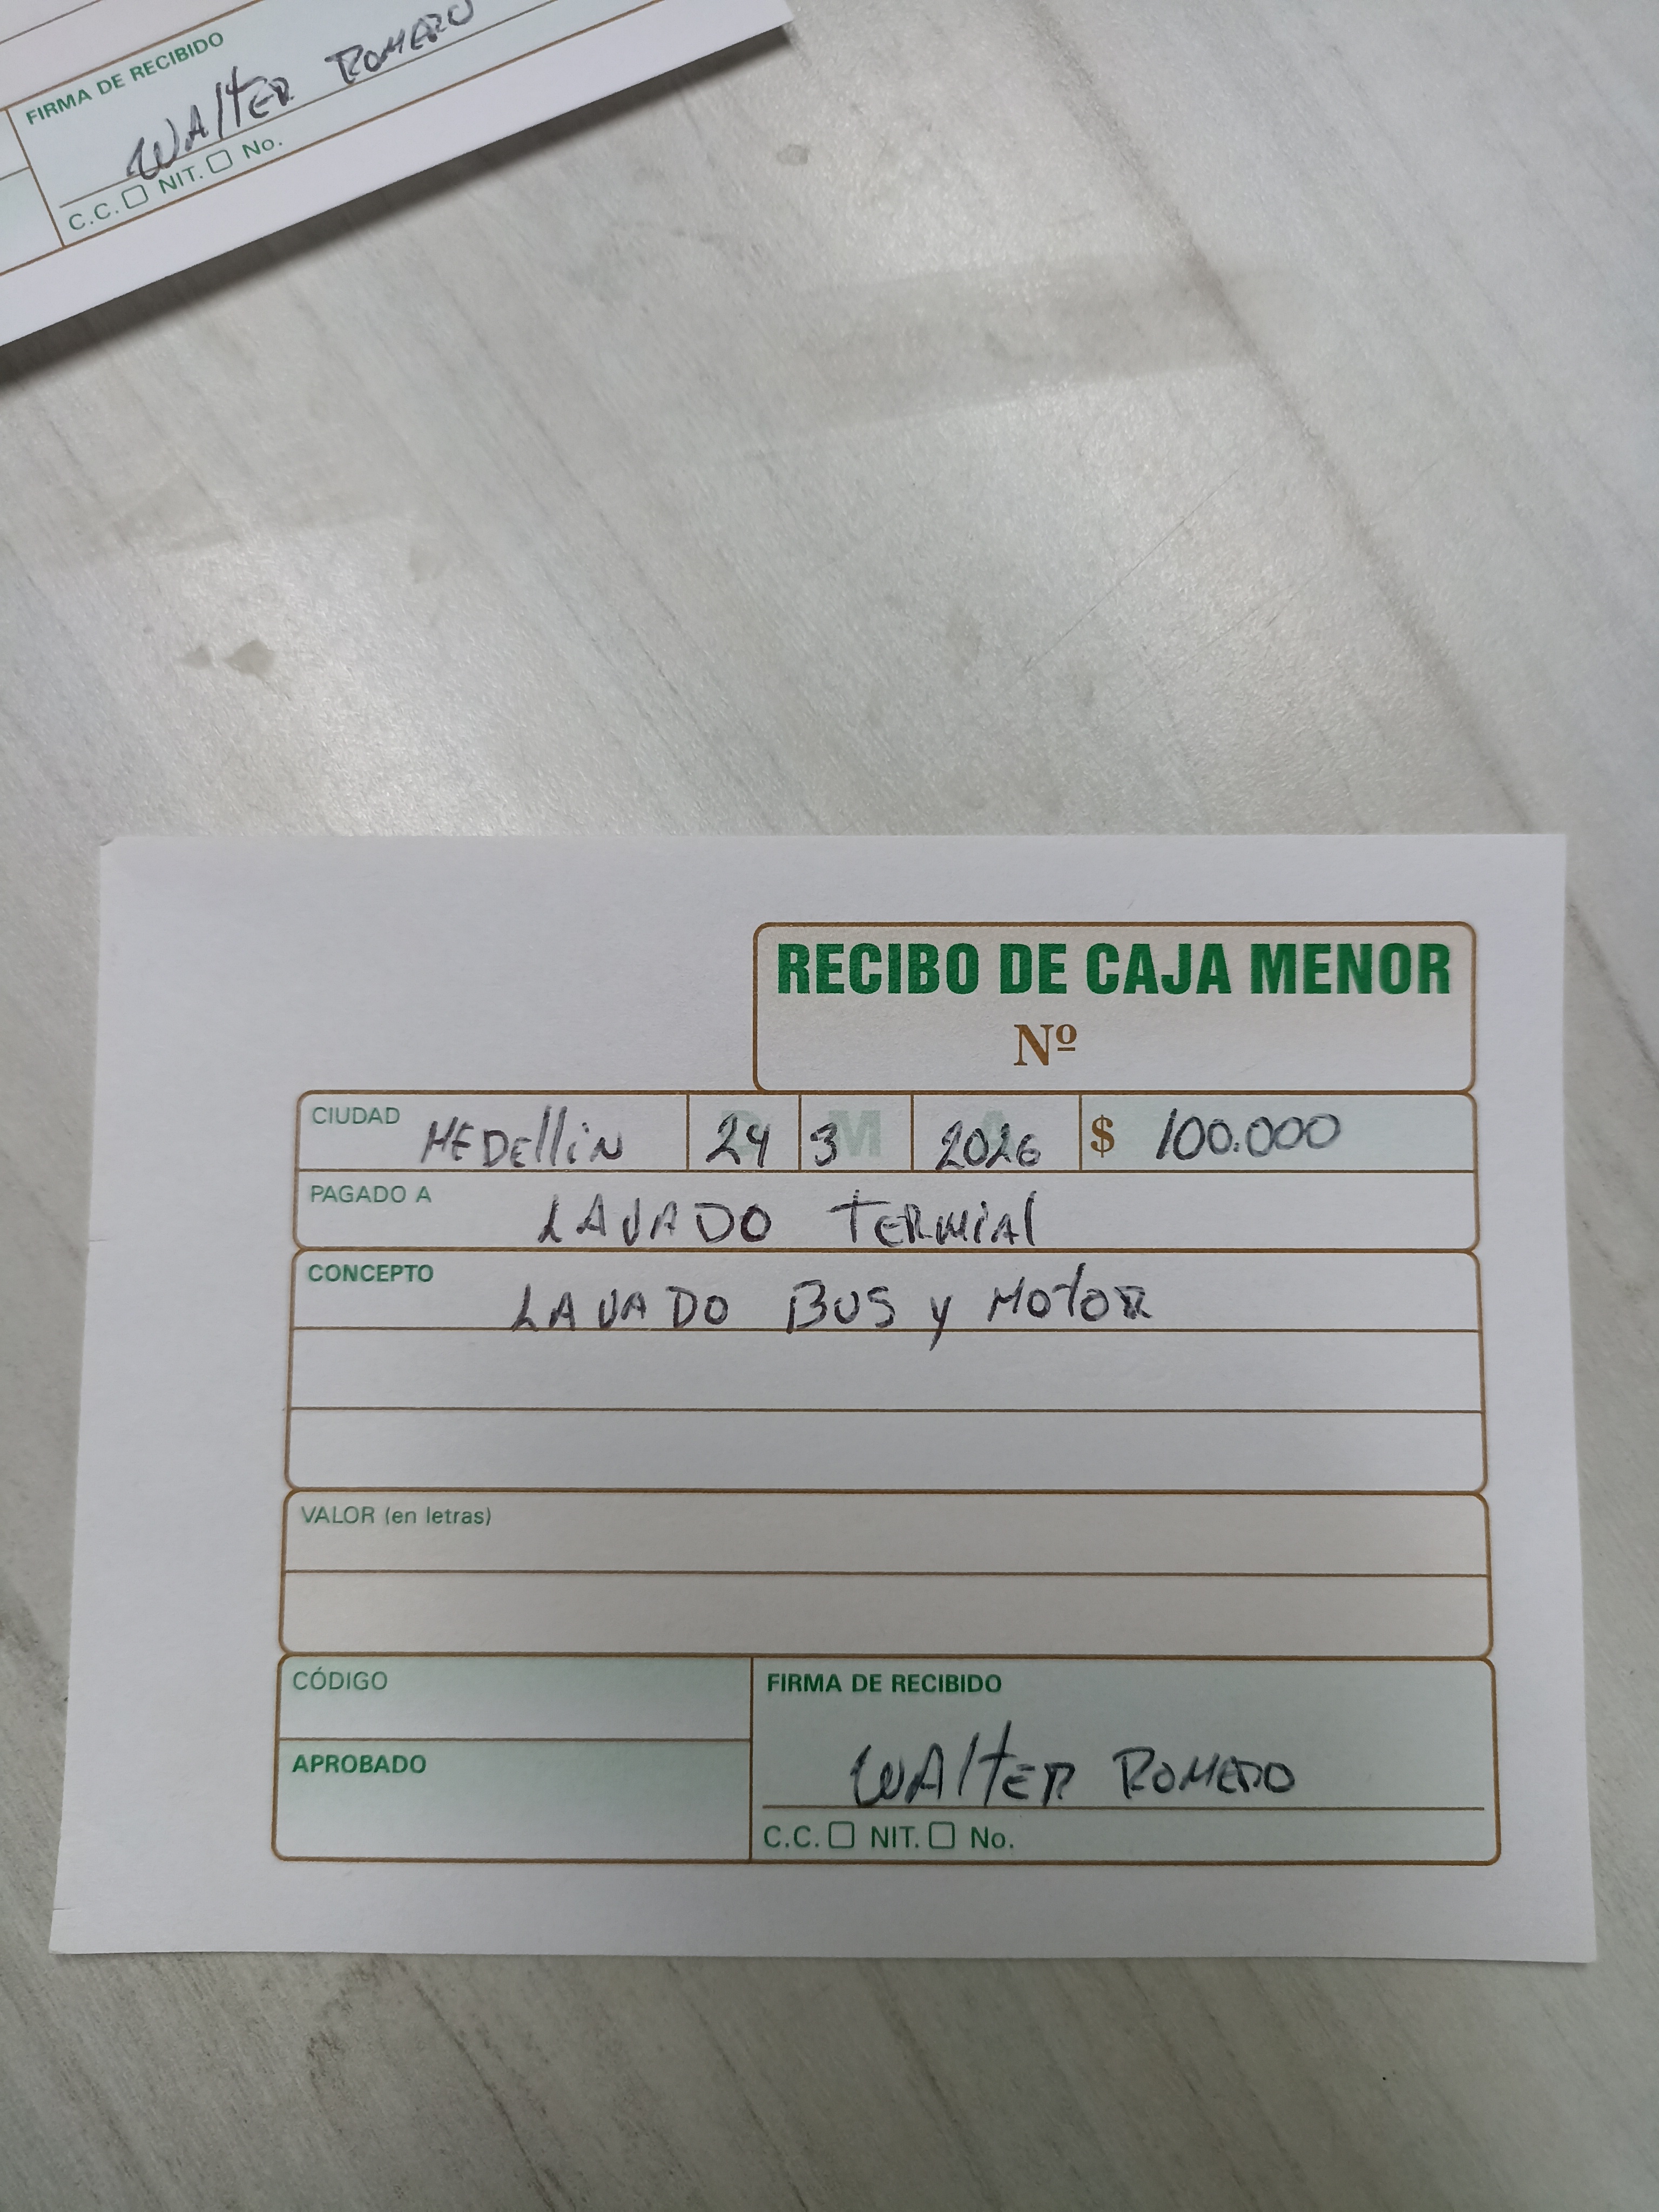 FIRMA DE RECIBIDO
WAlTER ROMERO
C.C. NIT. No.
RECIBO DE CAJA MENOR
Nº
CIUDAD MEDEllIN D 24 M 3 A 2026 $ 100.000
PAGADO A LAVADO TERMIAl
CONCEPTO LAVADO BUS y MOTOR
VALOR (en letras)
CÓDIGO
FIRMA DE RECIBIDO
APROBADO
WAlTER ROMERO
C.C. NIT. No.